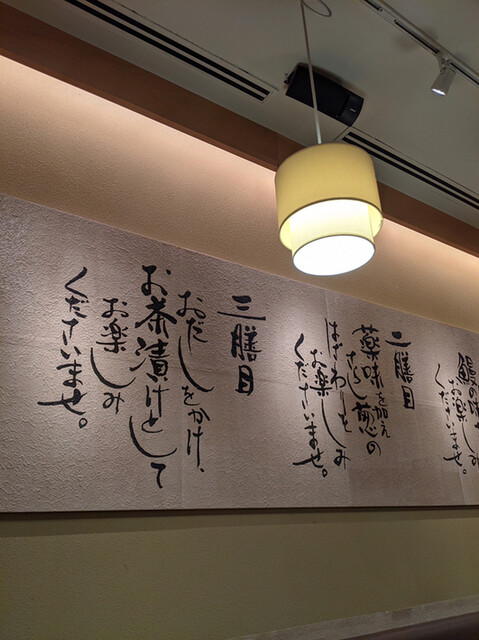 鰻の味
お楽しみ
くださいませ。
二膳目
薬味を加え
さらし葱の
はざわりを
お楽しみ
くださいませ。
三膳目
おだしをかけ、
お茶漬けとして
お楽しみ
くださいませ。